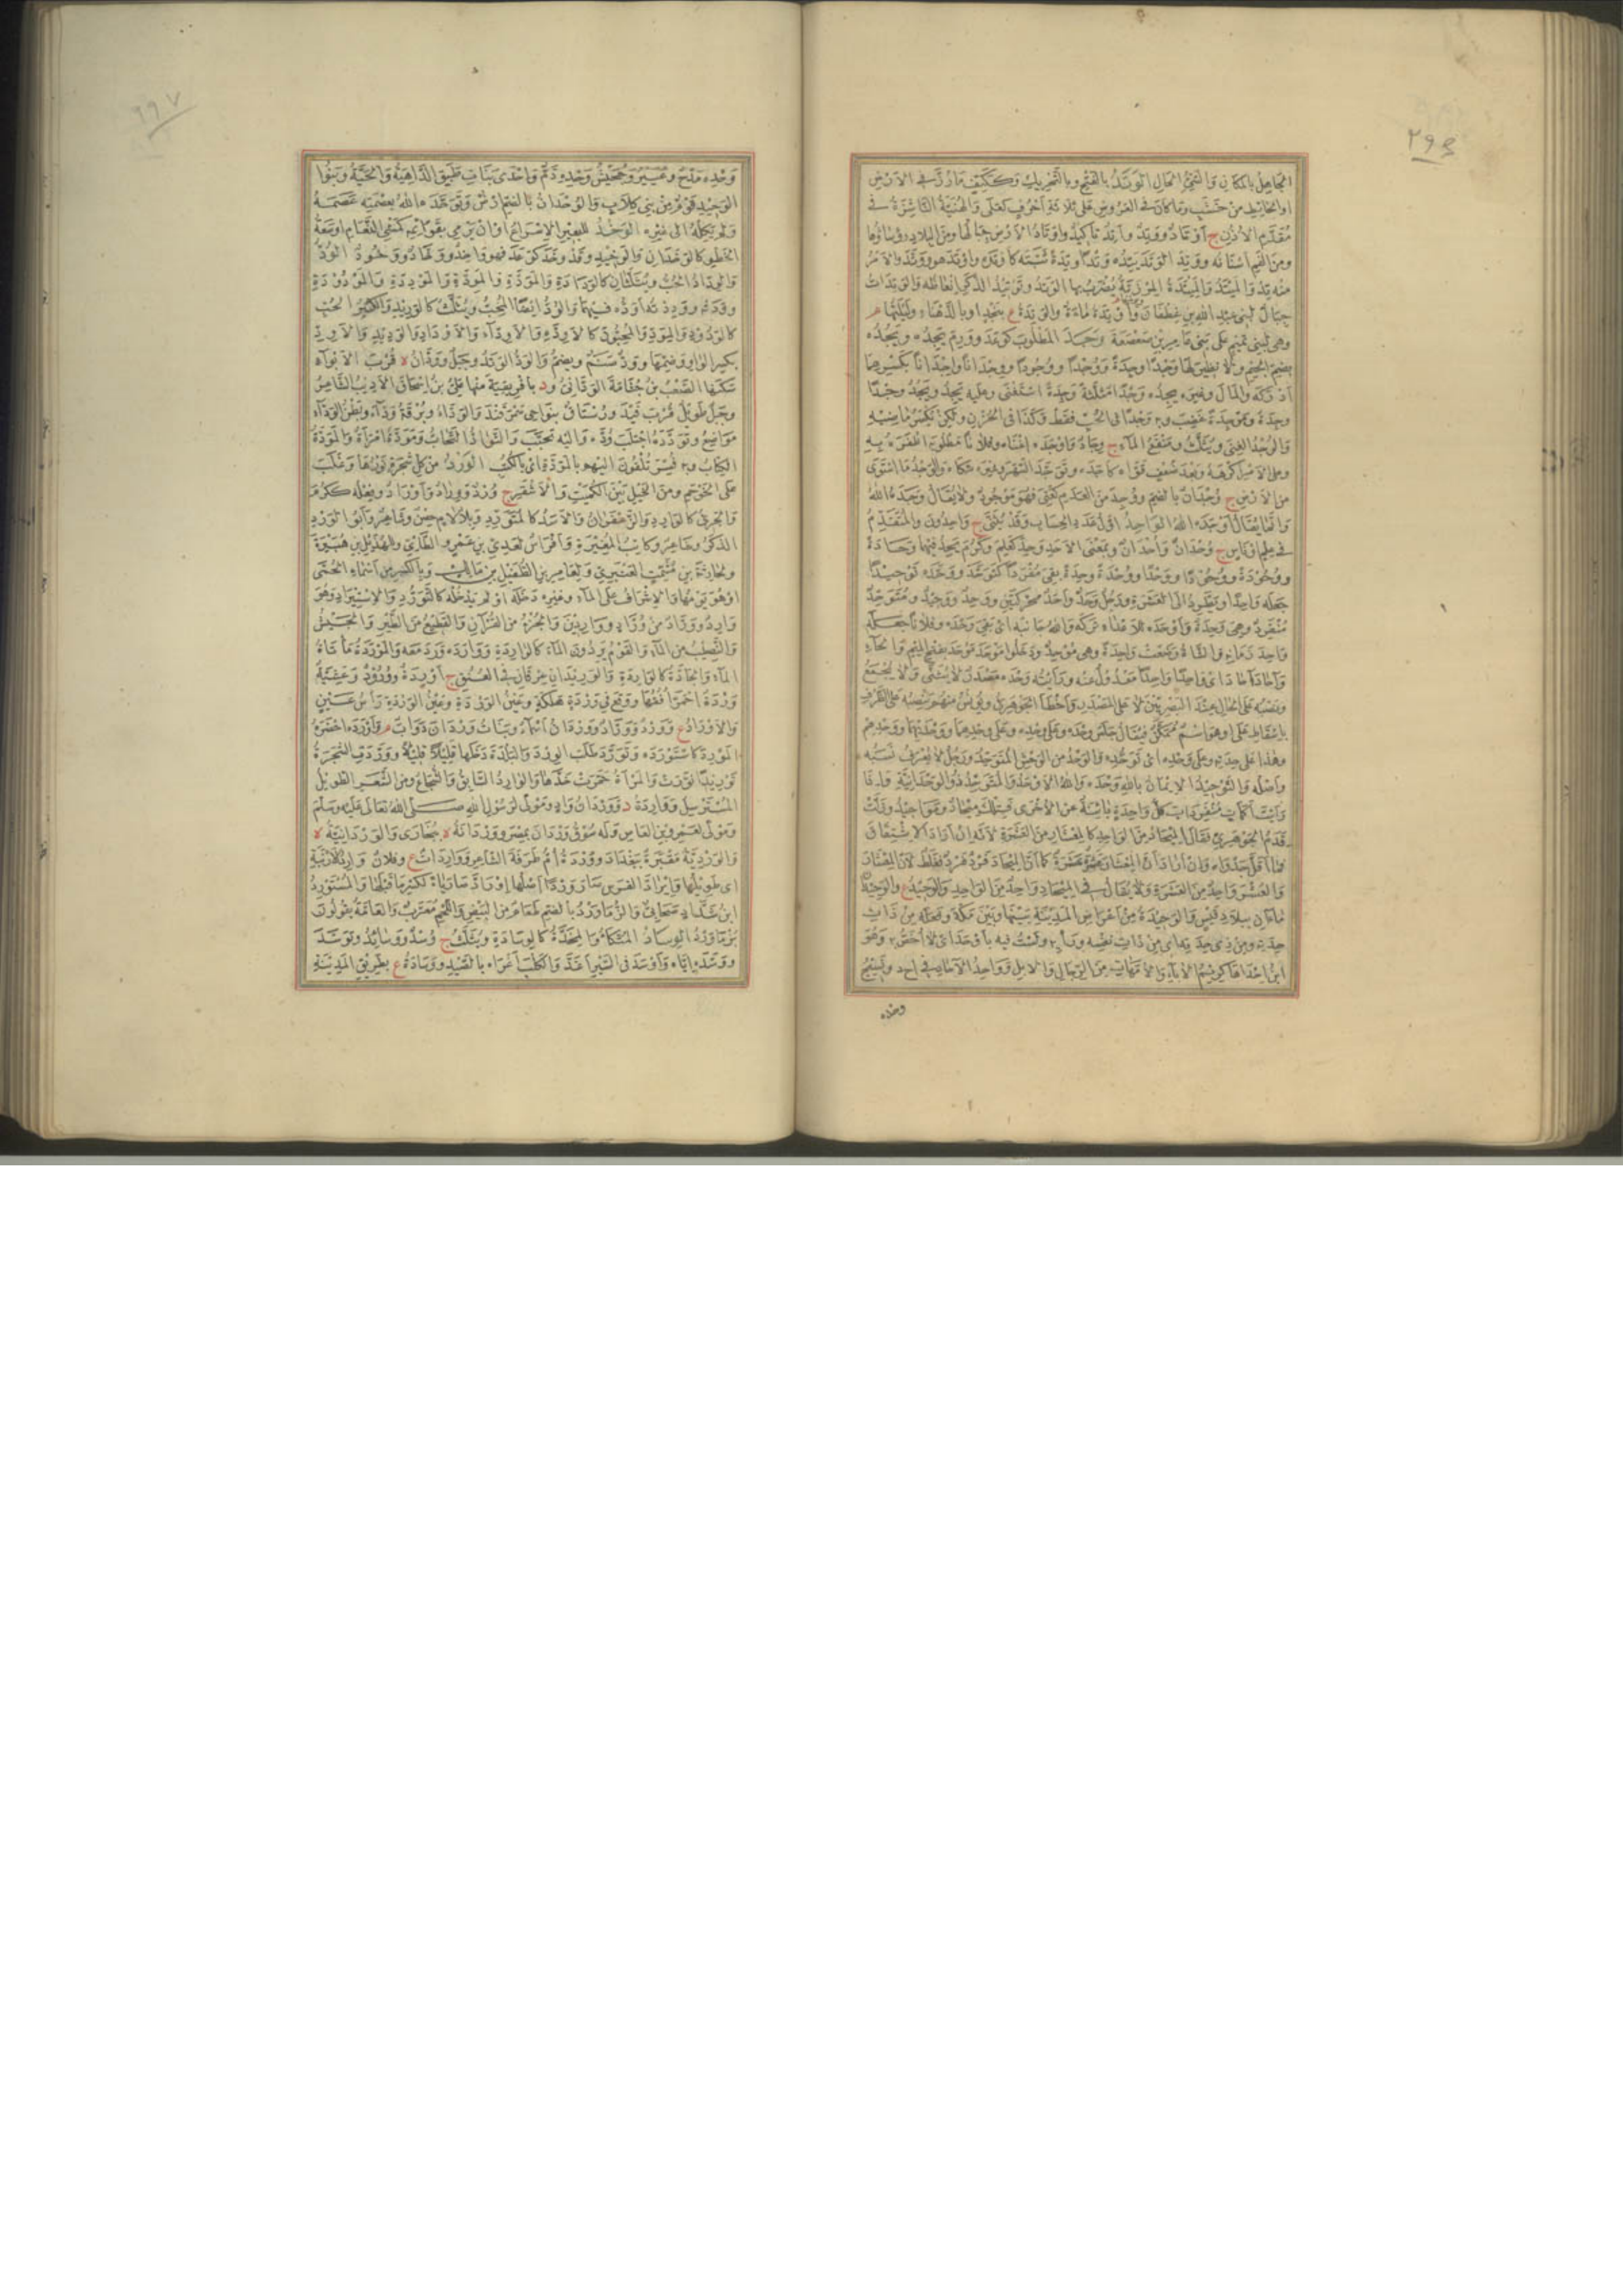 ٢٩٤
المجاهل بالمكان والنجم المحال الوتد بالفتح وبالتحريك وككتف مارز في الارض
او الحائط من خشب وما كان في العروض على ثلاثة احرف كعلى والهنية الناشزة في
مقدم الاذن ج اوتاد ووتد واتد تاكيد واوتاد الارض جبالها ومن البلاد رؤساؤها
ومن الفم اسنانه ووتد الوتد يتده وتدا وتدة ثبته كاوتده واوتد هو ووتد والامر
منه تد والميتد والميتدة المرزبة يضرب بها الوتد وتوتيد الذكر انعاظه والوتدات
جبال لبني عبد الله بن غطفان و وتدة ماءة والوتدة ع بنجد او بالدهناء وليلتها م
وهي لبني تميم على بني عامر بن صعصعة وجد المطلوب كوعد وورم يجده ويجده
بضم الجيم ولا نظير لها وجدا وجدة ووجدا ووجودا ووجدانا واجدانا بكسرهما
ادركه والمال وغيره يجده وجدا مثلثة وجدة استغنى وعليه يجد ويجد وجدا
وجدة وموجدة غضب وبه وجدا في الحب فقط وكذا في الحزن ولكن يكسر ماضيه
والوجد الغنى ويثلث ومنقع الماء ج وجاد واوجده اغناه وفلانا مطلوبه اظفره به
وعلى الامر اكرهه وبعد ضعف قواه كآجده وتوجد السهر وغيره شكاه والوجد ما استوى
من الارض ج وجدان بالضم ووجد من العدم كعنى فهو موجود ولا يقال وجده الله
وانما يقال اوجده الله الواحد اول عدد الحساب وقد يثنى ج واحدون والمتقدم
في علم او باس ج وحدان واحدان وبمعنى الاحد وحد كعلم وكرم يحد فيهما وحادة
ووحودة ووحودا ووحدا ووحدة وحدة بقى مفردا كتوحد ووحده توحيدا
جعله واحدا ويطرد الى العشرة ورجل وحد واحد محركتين ووحد ووحيد ومتوحد
منفرد وهي وحدة واوحده للاعداء تركه والله جانبه اي بقي وحده وفلانا جعله
واحد زمانه والشاة وضعت واحدة وهي موحد ودخلوا موحد موحد بفتح الميم والحاء
واحاد احاد اي واحدا واحدا معدول عنه ورايته وحده مصدر لا يثنى ولا يجمع
ونصبه على الحال عند البصريين لا على المصدر واخطا الجوهري ويونس منهم ينصبه على الظرف
باسقاط على او هو اسم ممكن فيقال جلس وحده وعلى وحده وعلى وحدهما ووحديهما ووحدهم
وهذا على حدته وعلى وحده اي توحده والوحد من الوحش المتوحد ورجل لا يعرف نسبه
واصله والتوحيد الايمان بالله وحده والله الاوحد والمتوحد ذو الوحدانية واذا
رايت اكمات منفردات كل واحدة بائنة عن الاخرى فتلك ميحاد ومواحيد وزلت
قدم الجوهري فقال الميحاد من الواحد كالمعشار من العشرة لانه ان اراد الاشتقاق
فما اقل جدواه وان اراد ان المعشار عشرة عشرة كما ان الميحاد فرد فرد فغلط لان المعشار
والعشر واحد من العشرة ولا يقال في الميحاد واحد من الواحد والوحيد ع والوحيدان
ماءان ببلاد قيس والوحيدة من اعراض المدينة بينها وبين مكة وفعله من ذات
حدته ومن ذي حدته اي من ذات نفسه ورايه ولست فيه باوحد اي لا اخص به وهو
ابن احداها كريم الآباء والامهات من الرجال والابل وواحد الآحاد في احد ونسيج
وحده
٢٩٧
وحده مدح وعيير وجحيش وحده ذم واحدى بنات طبق الداهية والحية وبنوا
الوحيد قوم من بني كلاب والوحدان بالضم ارض وتوحده الله بعصمته عصمه
ولم يكله الى غيره الوخد للبعير الاسراع او ان يرمي بقوائمه كمشي النعام او سعة
الخطو كالوخدان والوخيد وقد وخد كوعد فهو واخد ووخاد ووخود الود
والوداد الحب ويثلثان كالودادة والمودة والمودة والموددة والمودودة
وودده ووددته اوده فيهما والود ايضا المحب ويثلث كالوديد والكثير الحب
كالودود والمود والمحبون كالاودة والاوداء والاوداد والوديد والاود
بكسر الواو وضمها وود صنم ويضم والود الوتد وجبل وودان ة قرب الابواء
سكنها الصعب بن جثامة الوداني ود بافريقية منها علي بن اسحاق الاديب الشاعر
وجبل طويل قرب فيد ورستاق بنواحي سمرقند والوداء وبرقة وداء وبطن الوداء
مواضع وتودده اجتلب وده واليه تحبب والتواد التحاب ومودة امراة والمودة
الكتاب وبه فسر تلقون اليهم بالمودة اي بالكتب الورد من كل شجرة نورها وغلب
على الحوجم ومن الخيل بين الكميت والاشقر ج ورد ووراد واوراد وفعله ككرم
والجريء كالوارد والزعفران والاسد كالمتورد وبلا لام حصن وشاعر وابو الورد
الذكر وشاعر وكاتب المغيرة وافراس لعدي بن عمرو الطائي وللهذيل بن هبيرة
ولحارثة بن مشمت العنبري ولعامر بن الطفيل بن مالك وبالكسر من اسماء الحمى
او هو يومها والاشراف على الماء وغيره دخله او لم يدخله كالتورد والاستيراد وهو
وارد ووراد من وراد وواردين والجزء من القرآن والقطيع من الطير والجيش
والنصيب من الماء والقوم يردون الماء كالواردة وواردة ورد معه والموردة ماتاة
الماء والجادة كالواردة والوريدان عرقان في العنق ج اوردة وورود وعشية
وردة احمر افقها ووقع في وردة هلكة وعين الوردة راس عين
والاوراد ع وورد ووراد ووردان اسماء وبنات وردان دواب م واورده احضره
المورد كاستورده وتورد طلب الورد والبلدة دخلها قليلا قليلا ووردت الشجرة
توريدا نورت والمراة حمرت خدها والوارد السابق والشجاع ومن الشعر الطويل
المسترسل وواردة د ووردان واد ومولى لرسول الله صلى الله تعالى عليه وسلم
ومولى لعمرو بن العاص وله سوق وردان بمصر ووردانة ة ببخارى والوردانية ة
والوردية مقبرة ببغداد ووردة ام طرفة الشاعر وواردات ع وفلان وارد الارنبة
اي طويلها وايراد الفرس وردا اصلها اوراد صارت ياء لكسر ما قبلها والمستورد
ابن شداد صحابي والزماورد بالضم طعام من البيض واللحم معرب والعامة يقولون
بزماورد الوساد المتكا والمخدة كالوسادة ويثلث ج وسد ووسائد وتوسد
ووسده اياه واوسد في السير اغذ والكلب اغراه بالصيد ووسادة ع بطريق المدينة